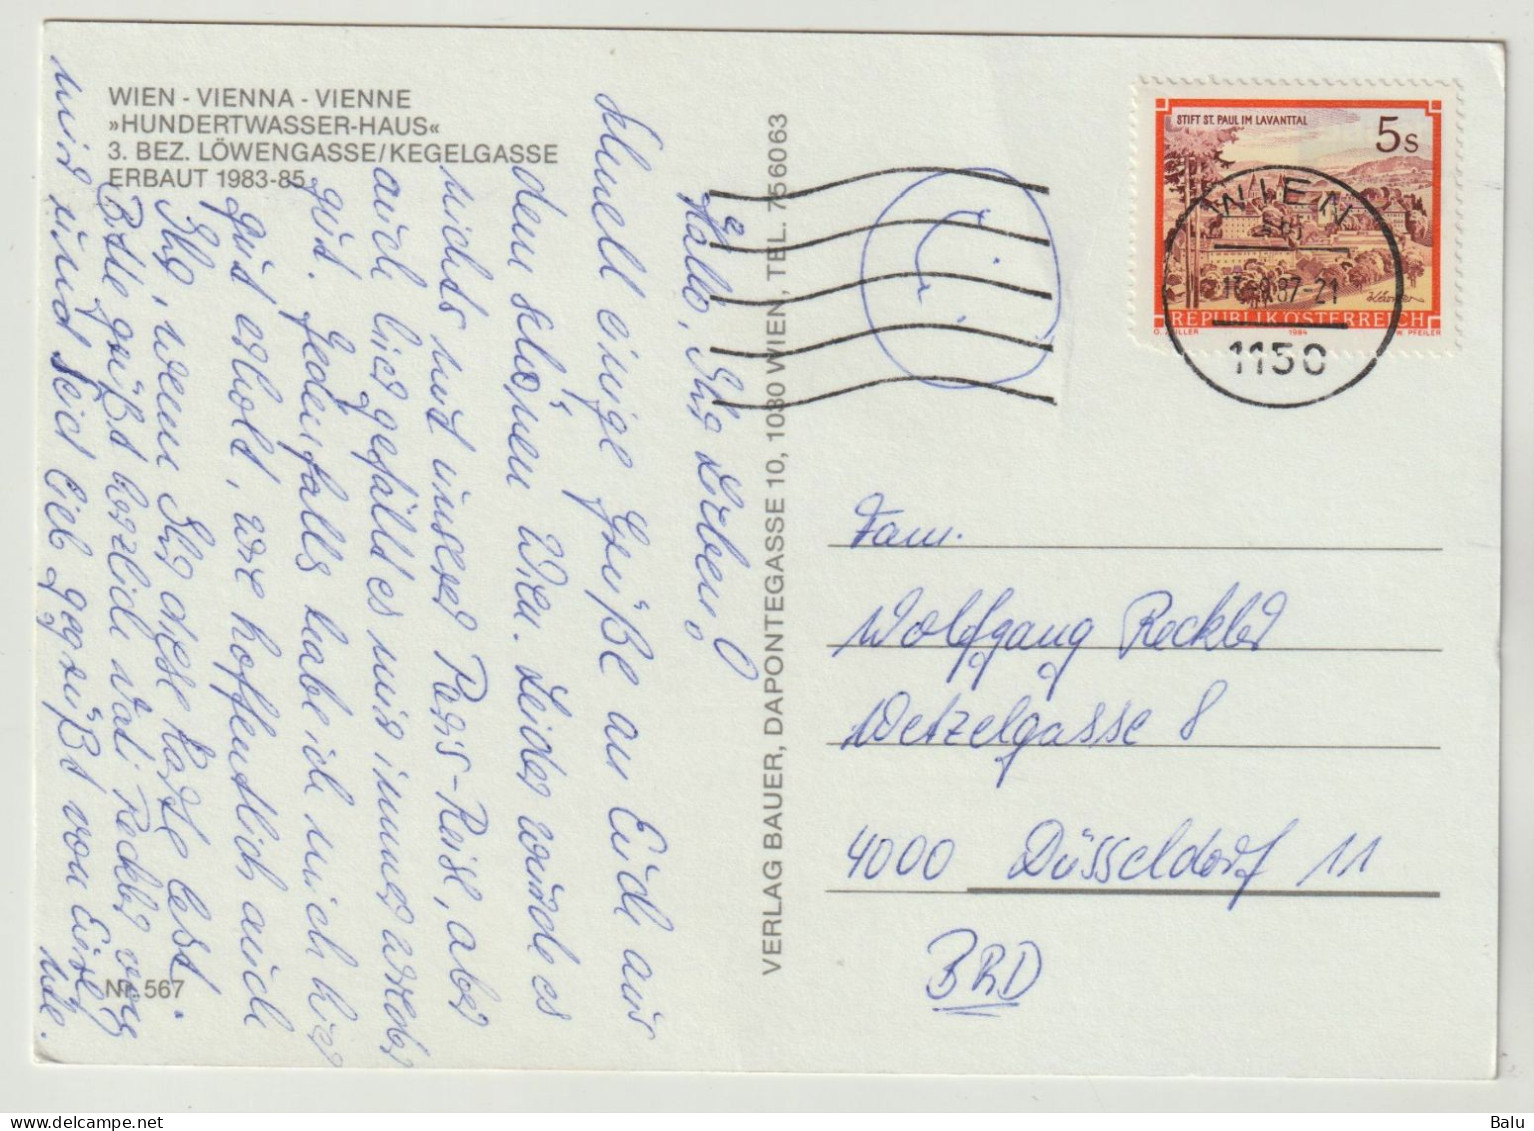 WIEN - VIENNA - VIENNE
»HUNDERTWASSER-HAUS«
3. BEZ. LÖWENGASSE/KEGELGASSE
ERBAUT 1983-85
Hallo, Ihr Lieben!
schnell einige Grüße an Euch aus
dem schönen Wien. Leider wurde es
nichts mit unserer Paris-Reise, aber
auch hier gefällt es mir immer wieder
gut. Jedenfalls habe ich mich hier
gut erholt, wie hoffentlich auch
Ihr, wenn Ihr diese Karte lest.
Bitte grüßt herzlich Vati Reckler von
mir und seid lieb gegrüßt von Eurer
Ute.
Nr. 567
VERLAG BAUER, DAPONTEGASSE 10, 1030 WIEN, TEL. 756063
STIFT ST. PAUL IM LAVANTTAL
5s
REPUBLIK ÖSTERREICH
1984
W. PFEILER
WIEN
87-21
1150
Fam.
Wolfgang Reckler
Wetzelgasse 8
4000 Düsseldorf 11
BRD
Balu